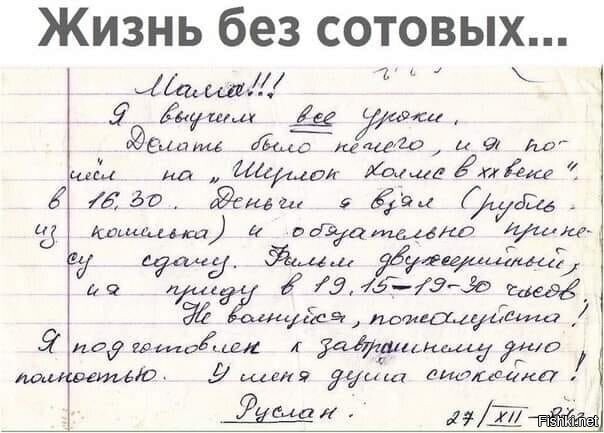 Жизнь без сотовых...
Мама!!!
Я выучил все уроки.
Делать было нечего, и я по-
шёл на „Шерлок Холмс в XX веке".
в 16.30. Деньги я взял (рубль
из кошелька) и обязательно прине-
су сдачу. Фильм двухсерийный,
и я приду в 19.15-19-30 часов.
Не волнуйся, пожалуйста!
Я подготовлен к завтрашнему дню
полностью. У меня душа спокойна!
Руслан.
27/XII
Fishki.net